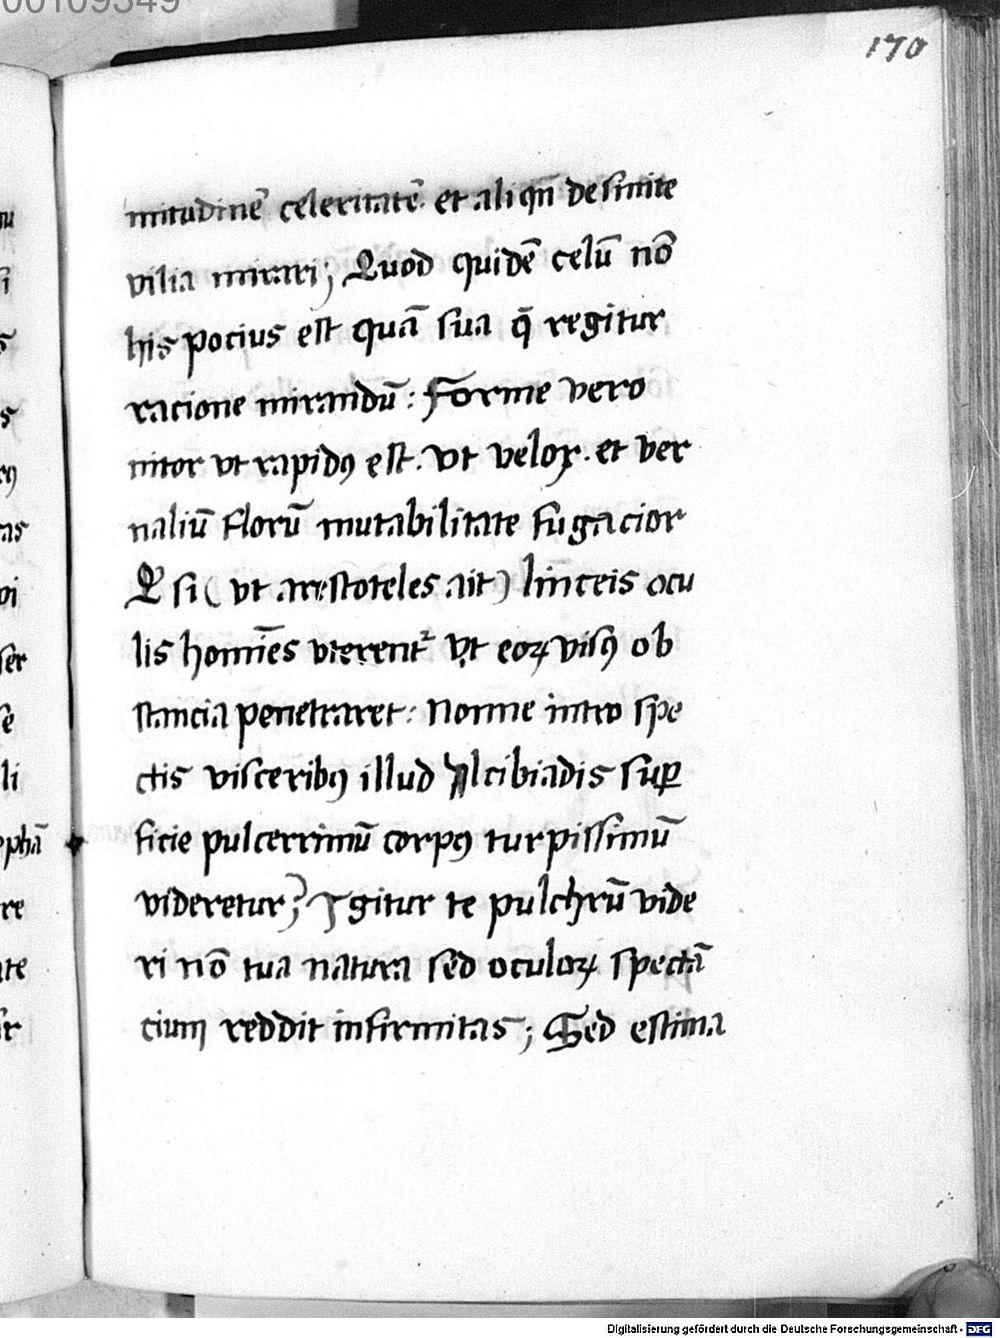 00109349
170
mitudinē celeritatē. et aliqn̄ desinite
vilia mirari; Quod quidē celū nō
his pocius est quā sua q̄ regitur
racione mirandū: Forme vero
nitor vt rapidꝰ est. vt velox. et ver
naliū florū mutabilitate fugacior
Q si (vt arestoteles ait) linceis ocu
lis homīes vterentᷣ vt eoꝝ visꝰ ob
stancia penetraret: Nonne intro spe
ctis visceribꝰ illud Alcibiadis suꝑ
ficie pulcerrimū corpꝰ turpissimū
videretur? Ygitur te pulchrū vide
ri nō tua natura sed oculoꝝ spectā
cium reddit infirmitas; Sed estima
Digitalisierung gefördert durch die Deutsche Forschungsgemeinschaft - DFG